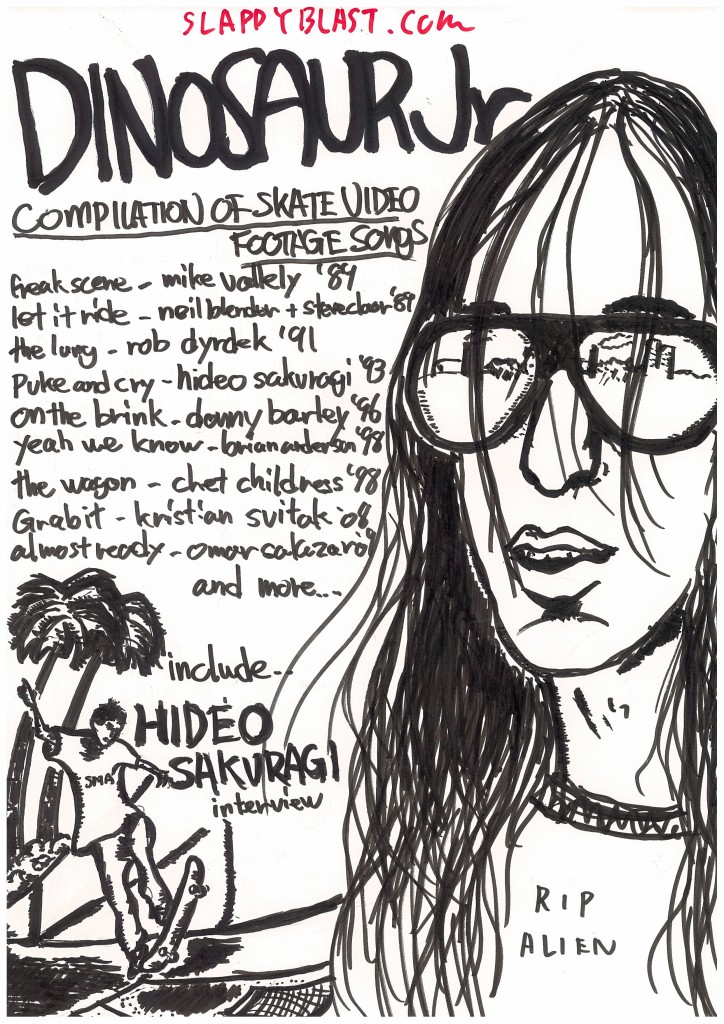 SLAPPYBLAST.com
DINOSAUR Jr
COMPILATION OF SKATE VIDEO
FOOTAGE SONGS
freak scene - mike vallely '89
let it ride - neil blender + steve claar '89
the lung - rob dyrdek '91
Puke and cry - hideo sakuragi '93
On the brink - donny barley '96
yeah we know - brian anderson '98
the wagon - chet childress '98
Grab it - kristian svitak '08
almost ready - omar salazar '09
and more...
include..
HIDEO
SAKURAGI
interview
SMA
RIP
ALIEN